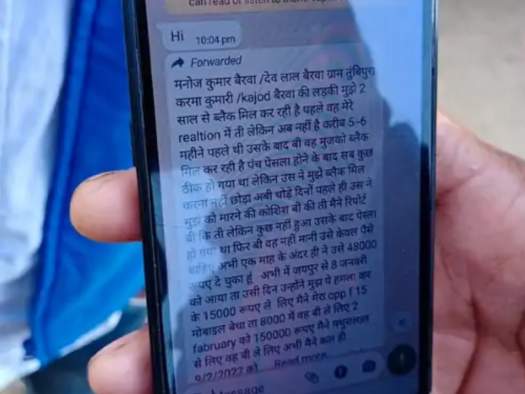 can read or listen to
Hi 10:04 pm
Forwarded
मनोज कुमार बैरवा /देव लाल बैरवा ग्राम तुंबिपुरा
करमा कुमारी /kajod बैरवा की लड़की मुझे 2
साल से ब्लैक मिल कर रही है पहले वह मेरे
realtion में ती लेकिन अब नहीं है करीब 5-6
महीने पहले थी उसके बाद बी वह मुजको ब्लैक
मिल कर रही है पंच पेसला होने के बाद सब कुछ
ठीक हो गया था लेकिन उस ने मुझे ब्लैक मिल
करना नहीं छोड़ा अबी थोड़े दिनों पहले ही उस ने
मुझ को मारने की कोशिश बो की ती मैने रिपोर्ट
बी कि ती लेकिन कुछ नहीं हुआ उसके बाद पेसला
हो गया था फिर बी वह नहीं मानी उसे केवल पैसे
चाहिए अभी एक माह के अंदर ही ने उसे 48000
रूपए दे चुका हूं अभी में जयपुर से 8 जनवरी
को आया ता उसी दिन उन्होंने मुझ पे हमला कर
के 15000 रूपए ले लिए मैने मेरा opp f 15
मोबाइल बेचा ता 8000 में वह बी ले लिए 2
fabruary को 150000 रूपए मैने
से लिए वह बी ले लिए अभी मैने कल ही
9/2/2022 को Read more
Message